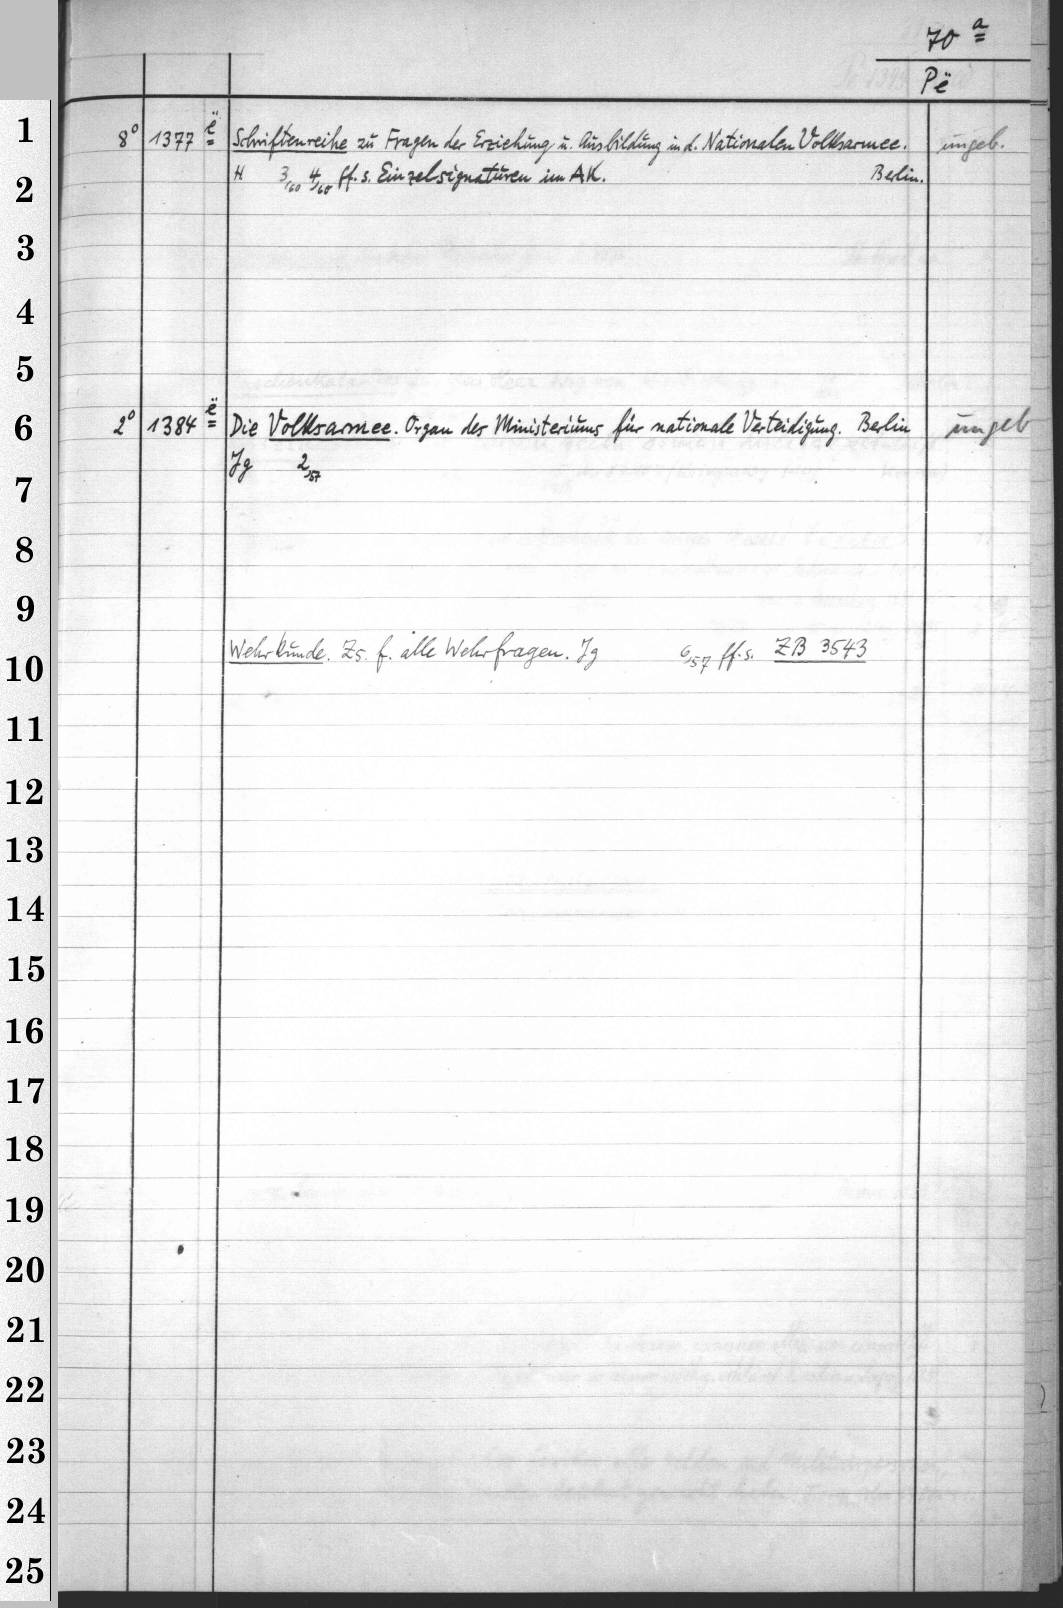 70 a
Pë
1
8° 1377 ë Schriftenreihe zu Fragen der Erziehung u. Ausbildung in d. Nationalen Volksarmee. ungeb.
2
H 3/60 4/60 ff. s. Einzelsignaturen im AK. Berlin.
3
4
5
6
2° 1384 ë Die Volksarmee. Organ des Ministeriums für nationale Verteidigung. Berlin ungeb
Jg 2/57
7
8
9
10
Wehrkunde. Zs. f. alle Wehrfragen. Jg 6/57 ff. s. ZB 3543
11
12
13
14
15
16
17
18
19
20
21
22
23
24
25